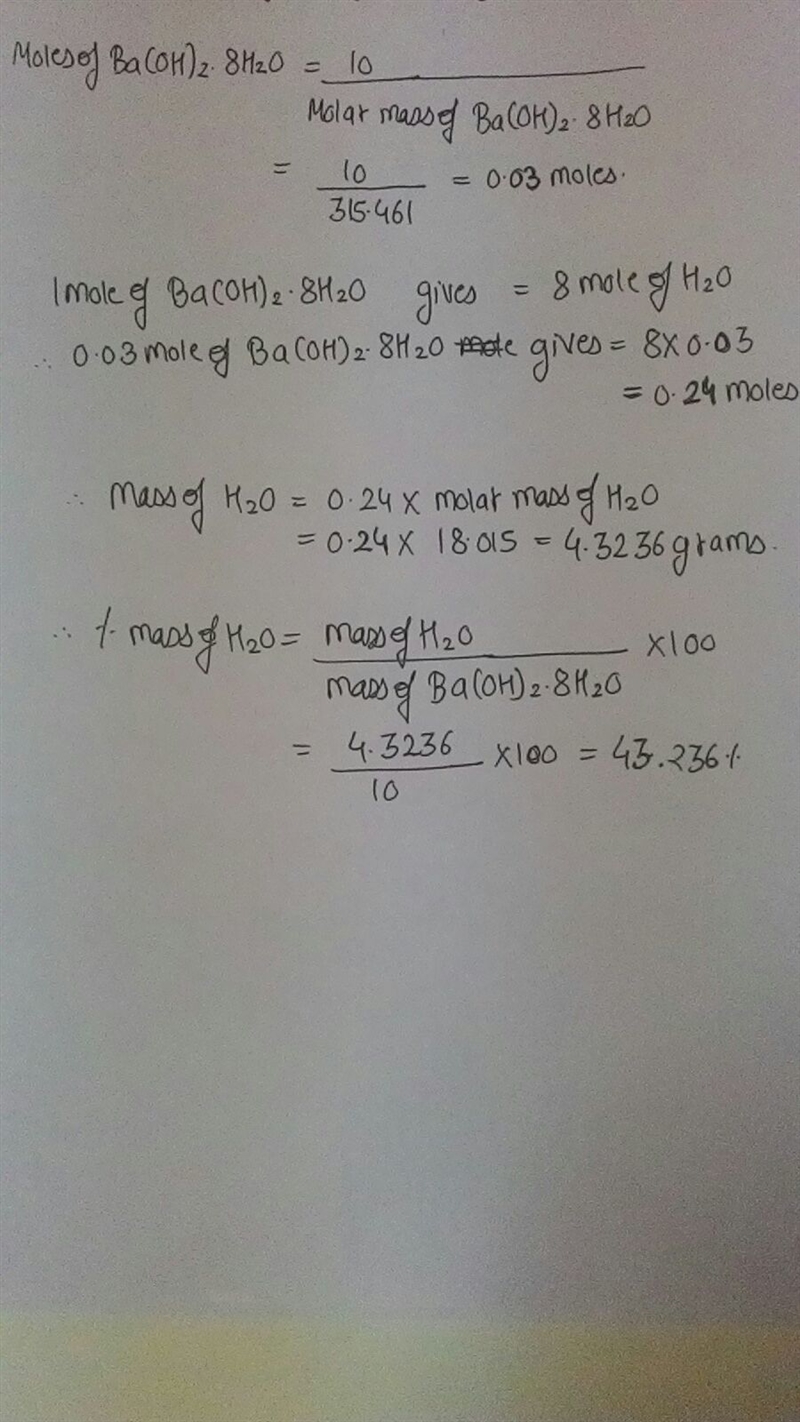 Moles of Ba(OH)2·8H2O = 10
Molar mass of Ba(OH)2·8H2O
= 10 = 0.03 moles.
315.461
1 mole of Ba(OH)2·8H2O gives = 8 mole of H2O
∴ 0.03 mole of Ba(OH)2·8H2O gives = 8 X 0.03
= 0.24 moles
∴ Mass of H2O = 0.24 X molar mass of H2O
= 0.24 X 18.015 = 4.3236 grams.
∴ % mass of H2O = mass of H2O X100
mass of Ba(OH)2·8H2O
= 4.3236 X100 = 43.236%
10